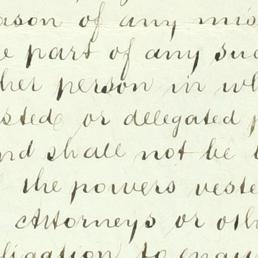 ason of any mis
e part of any suc
her person in wh
sted or delegated p
nd shall not be l
the powers veste
Attorneys or oth
ligation to enqui